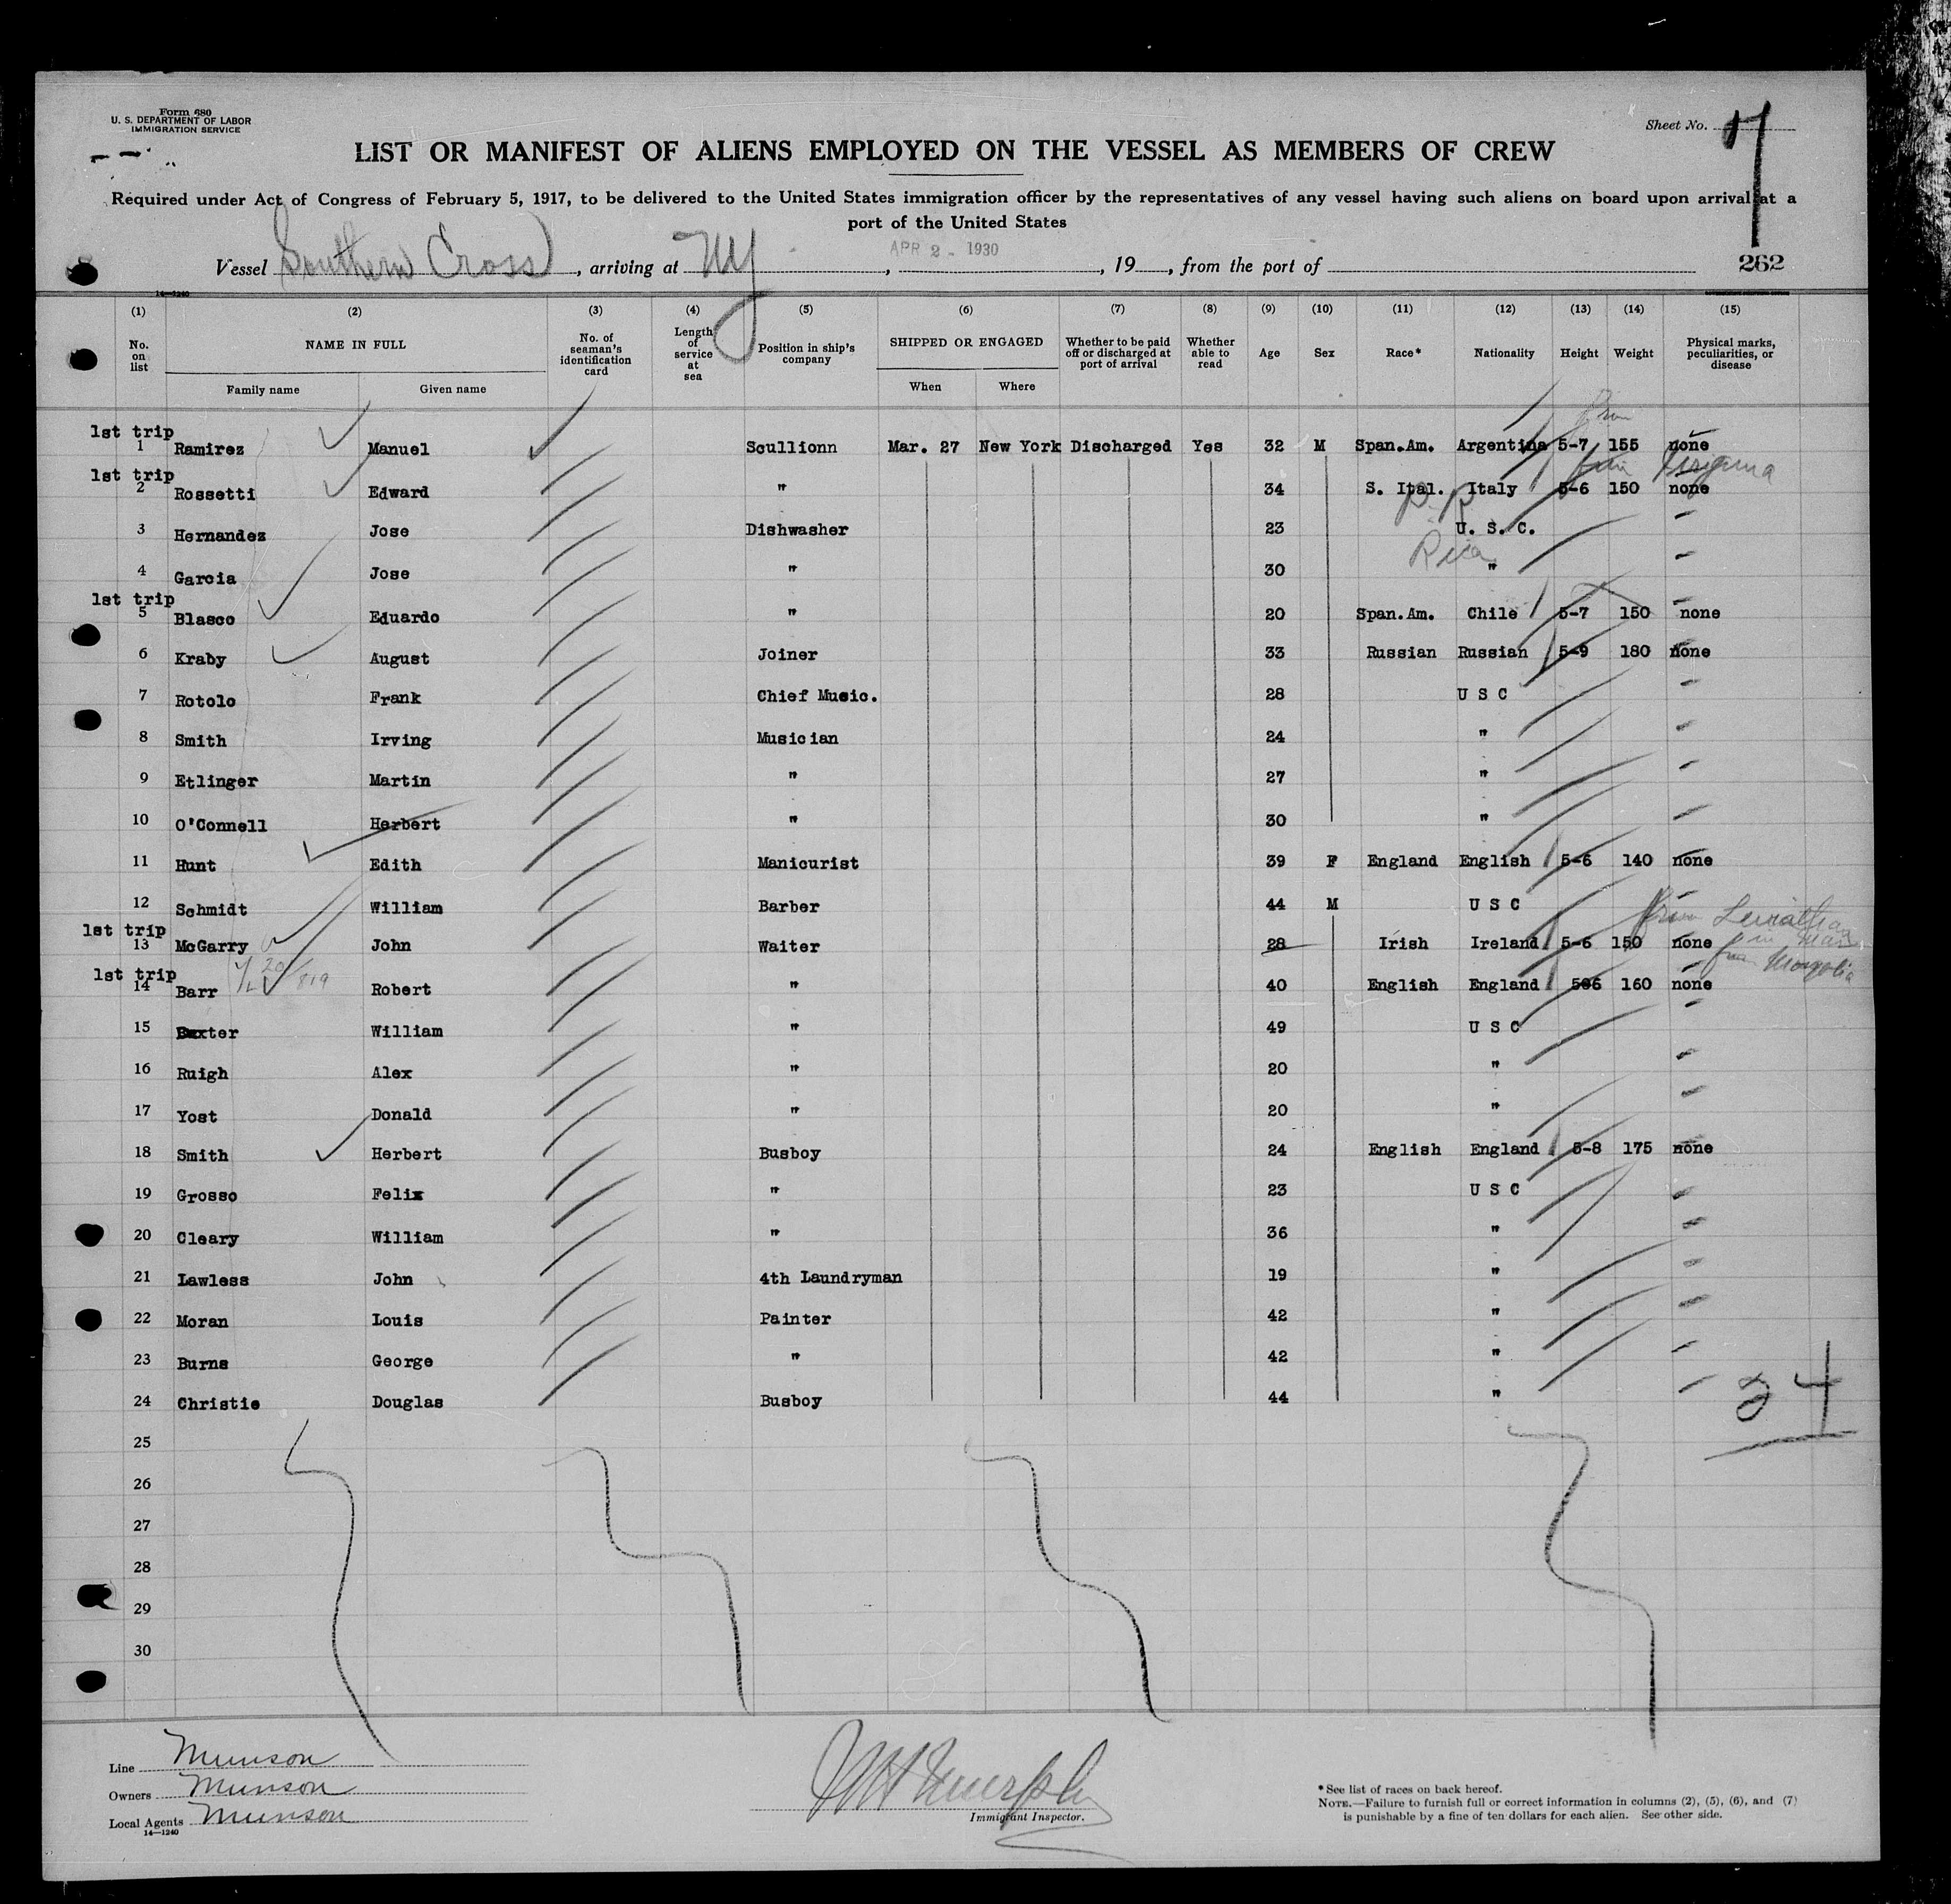 Form 680
U. S. DEPARTMENT OF LABOR
IMMIGRATION SERVICE
Sheet No.
LIST OR MANIFEST OF ALIENS EMPLOYED ON THE VESSEL AS MEMBERS OF CREW
Required under Act of Congress of February 5, 1917, to be delivered to the United States immigration officer by the representatives of any vessel having such aliens on board upon arrival at a
port of the United States
Vessel Southern Cross, arriving at NY, APR 2 - 1930, 19, from the port of
262
14—1240
(1) (2) (3) (4) (5) (6) (7) (8) (9) (10) (11) (12) (13) (14) (15)
No. on list NAME IN FULL Family name Given name No. of seaman's identification card Length of service at sea Position in ship's company SHIPPED OR ENGAGED When Where Whether to be paid off or discharged at port of arrival Whether able to read Age Sex Race* Nationality Height Weight Physical marks, peculiarities, or disease
from
1st trip
1 Ramirez Manuel Scullionn Mar. 27 New York Discharged Yes 32 M Span.Am. Argentina 5-7 155 none
1st trip
2 Rossetti Edward " 34 S. Ital. Italy 5-6 150 none
3 Hernandez Jose Dishwasher 23 U. S. C.
4 Garcia Jose " 30 Rica "
1st trip
5 Blasco Eduardo " 20 Span.Am. Chile 5-7 150 none
6 Kraby August Joiner 33 Russian Russian 5-9 180 none
7 Rotolo Frank Chief Music. 28 U S C
8 Smith Irving Musician 24 "
9 Etlinger Martin " 27 "
10 O'Connell Herbert " 30 "
11 Hunt Edith Manicurist 39 F England English 5-6 140 none
12 Schmidt William Barber 44 M U S C
from Leviathan
1st trip
13 McGarry John Waiter 28 Irish Ireland 5-6 150 none
from Mongolia
1st trip
14 Barr Robert " 40 English England 506 160 none
15 Baxter William " 49 U S C
16 Ruigh Alex " 20 "
17 Yost Donald " 20 "
18 Smith Herbert Busboy 24 English England 5-8 175 none
19 Grosso Felix " 23 U S C
20 Cleary William " 36 "
21 Lawless John 4th Laundryman 19 "
22 Moran Louis Painter 42 "
23 Burns George " 42 "
24 Christie Douglas Busboy 44 "
24
25
26
27
28
29
30
Line Munson
Owners Munson
Local Agents Munson
14—1240
Immigrant Inspector.
* See list of races on back hereof.
NOTE.—Failure to furnish full or correct information in columns (2), (5), (6), and (7)
is punishable by a fine of ten dollars for each alien. See other side.